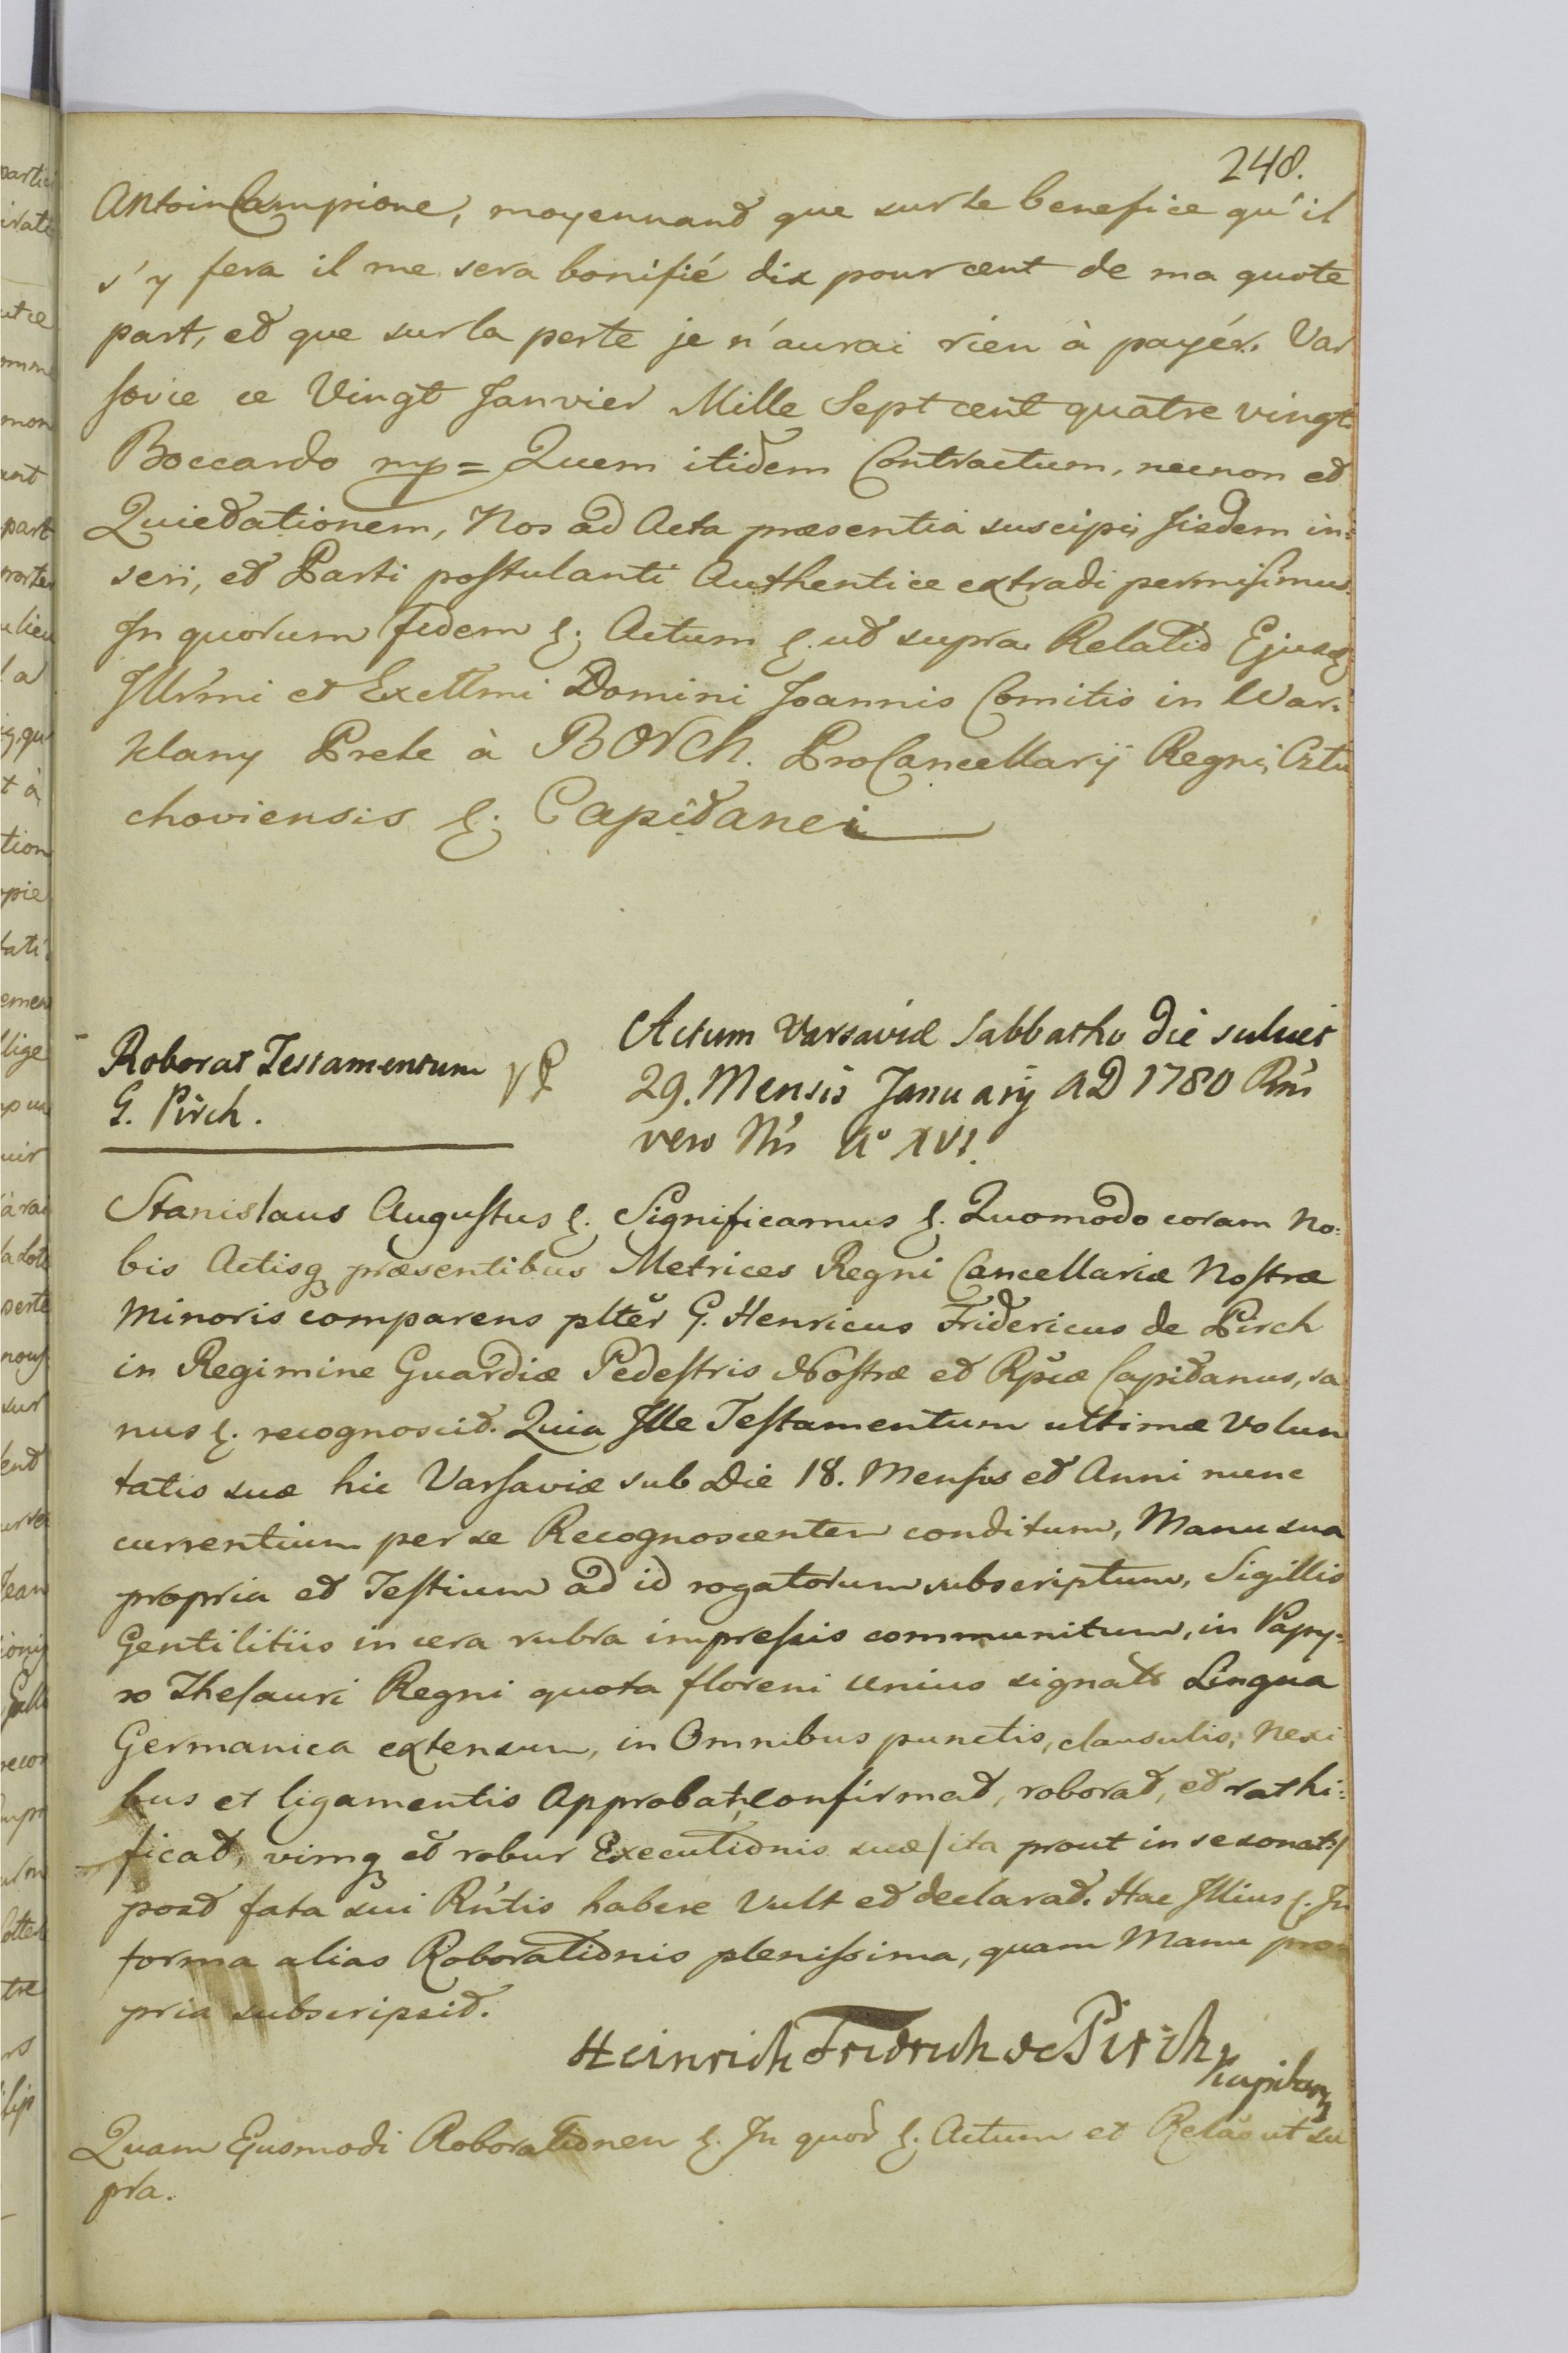 248.
Antoin Campione, moyennand que sur le benefice qu'il
s'y fera il me sera bonifié dix pour cent de ma quote
part, et que sur la perte je n'aurai rien à payér. Var
sovie ce Vingt Janvier Mille Sept cent quatre vingt
Boccardo mp= Quem itidem Contractum, necnon et
Quietationem, Nos ad Acta præsentia suscipi, Jisdem in=
seri, et Parti postulanti Authentice extradi permisimus.
In quorum fidem &. Actum &. ut supra. Relatio Ejusdq
Jllrmi et Excllmi Domini Joannis Comitis in War=
klany Prele à BORCh. ProCancellarij Regni, Oztu
choviensis &. Capitanei
Roborat Testamentum
G. Pirch.
Actum Varsaviæ Sabbatho die
29. Mensis January AD 1780 Rni
vero Nri Aº XVI.
Stanislaus Augustus &. Significamus &. Quomodo coram No=
bis Actisq præsentibus Metrices Regni Cancellariæ Nostræ
Minoris comparens plter G. Henricus Fridericus de Pirch
in Regimine Guardiæ Pedestris Nostræ et Rpcæ Capitanus, sa
nus &. recognoscit. Quia Jlle Testamentum ultimæ Volun
tatis suæ hic Varsaviæ sub Die 18. Mensis et Anni nunc
currentium per se Recognoscentem conditum, Manu sua
propria et Testium ad id rogatorum subscriptum, Sigillis
Gentilitiis in cera rubra impressis communitum, in Papy=
ro Thesauri Regni quota floreni unius signato Lingua
Germanica extensum, in Omnibus punctis, clausulis, nexi
bus et ligamentis Approbat, confirmat, roborat, et rathi=
ficat, vimq et robur Executionis suæ /ita prout in se sonat:/
post fata sui Rntis habere Vult et declarat. Hac Jllius &. In
forma alias Roborationis plenissima, quam Manu pro=
pria subscripsit.
Heinrich Fridrich de Pirch
Kapitan
Quam Ejusmodi Roborationem &. In quor &. Actum et Relao ut su
pra.